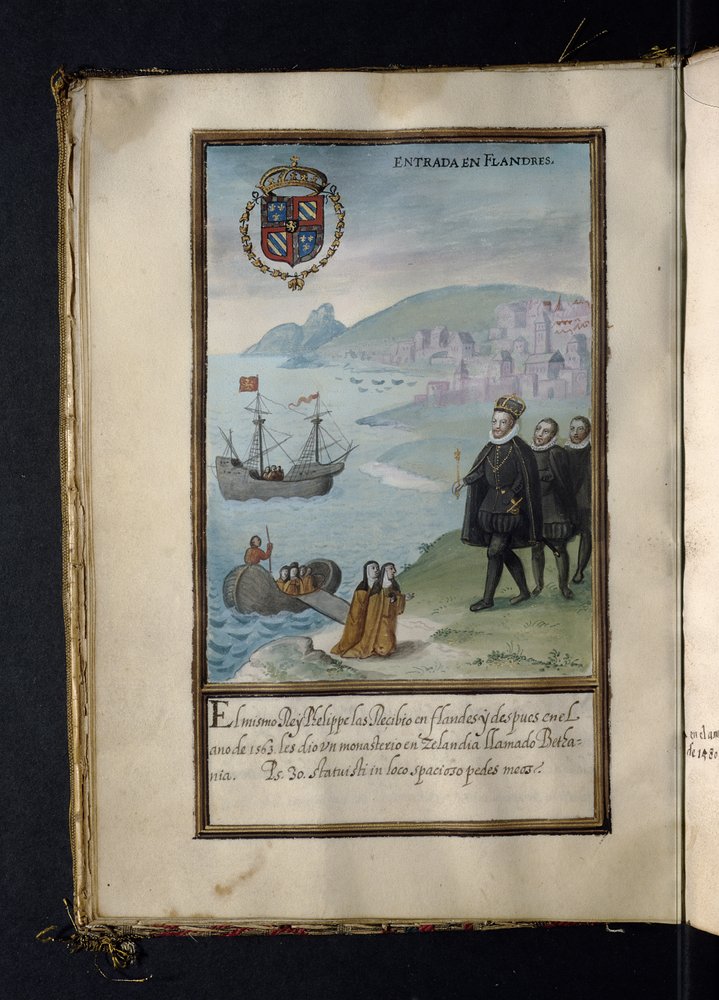 ENTRADA EN FLANDRES.
El mismo Rey Phelippe las Recibio en flandes y despues en el
ano de 1563. les dio vn monasterio en Zelandia llamado Betha-
nia. Ps. 30. statuisti in loco spacioso pedes meos.
en el am
de 1480